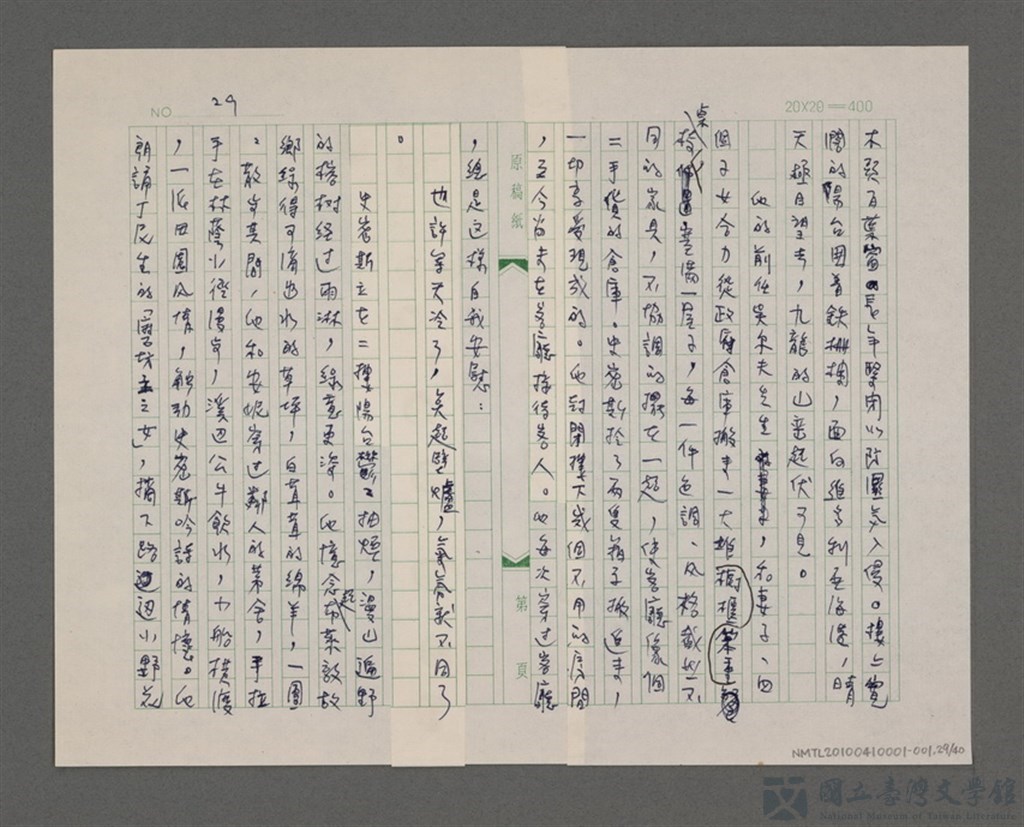 NO 29
20X20＝400
木頭百葉窗長年緊閉以防濕氣入侵。樓上寬
闊的陽台圍著鉄柵欄，面向維多利亞海港，晴
天極目望去，九龍的山巒起伏可見。
他的前任吳尔夫先生，和妻子、四
個子女合力從政府倉庫搬來一大堆櫥櫃
桌椅，塞滿一屋子，每一件色調、风格截然不
同的家具，不協調的擺在一起，使客廳像個
二手貨的倉庫。史密斯拎了兩隻箱子搬進來，
一切享受現成的。他封閉樓下幾個不用的房間
，至今尚未在客廳接待客人。他每次穿过客廳
，總是这樣自我安慰：
也許等天冷了，矣起壁爐，氣氛就不同了
。
史密斯立在二樓陽台鬱鬱抽煙，漫山遍野
的榕树经过雨淋，綠意更深。他憶念起蘇格敦故
鄉綠得可滴出水的草坪，白茸茸的綿羊，一團
，散步其間，他和安妮穿过鄰人的茅舍，手拉
手在林蔭小徑漫步，溪边公牛飲水，小船橫渡
，一派田園风情，触动史密斯吟詩的情懷。他
朗誦丁尼生的「磨坊主之女」，摘下路边小野花
原稿紙
第 頁
NMTL20100410001-001.29/40
國立臺灣文學館
National Museum of Taiwan Literature